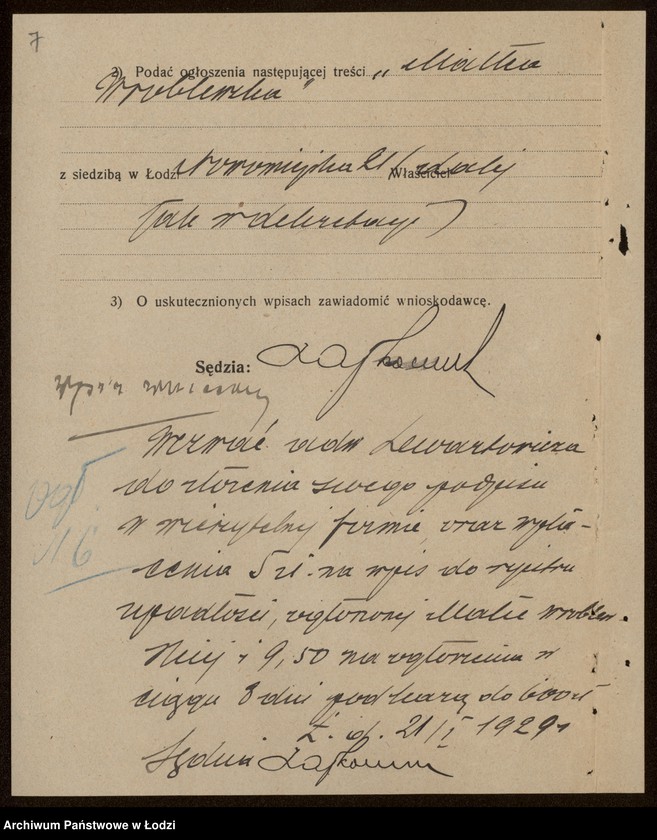 7
2) Podać ogłoszenia następującej treści „Malka
Wroblewska"
z siedzibą w Łodzi Nowomiejska 21 (dalej
Właściciel
jak w dekretacji)
3) O uskutecznionych wpisach zawiadomić wnioskodawcę.
Sędzia:
Wpis
Wezwać adw Lewartowicza
do złożenia swego podpisu
w wierzytelnej firmie, oraz wpła-
cenia 5 zł. na wpis do rejestru
upadłości, ogłoszonej Malce Wroblew-
skiej i 9,50 na ogłoszenia w
ciągu 8 dni pod karą do 600 zł
Ł. d. 21/I 1929 r
Sędzia
Archiwum Państwowe w Łodzi